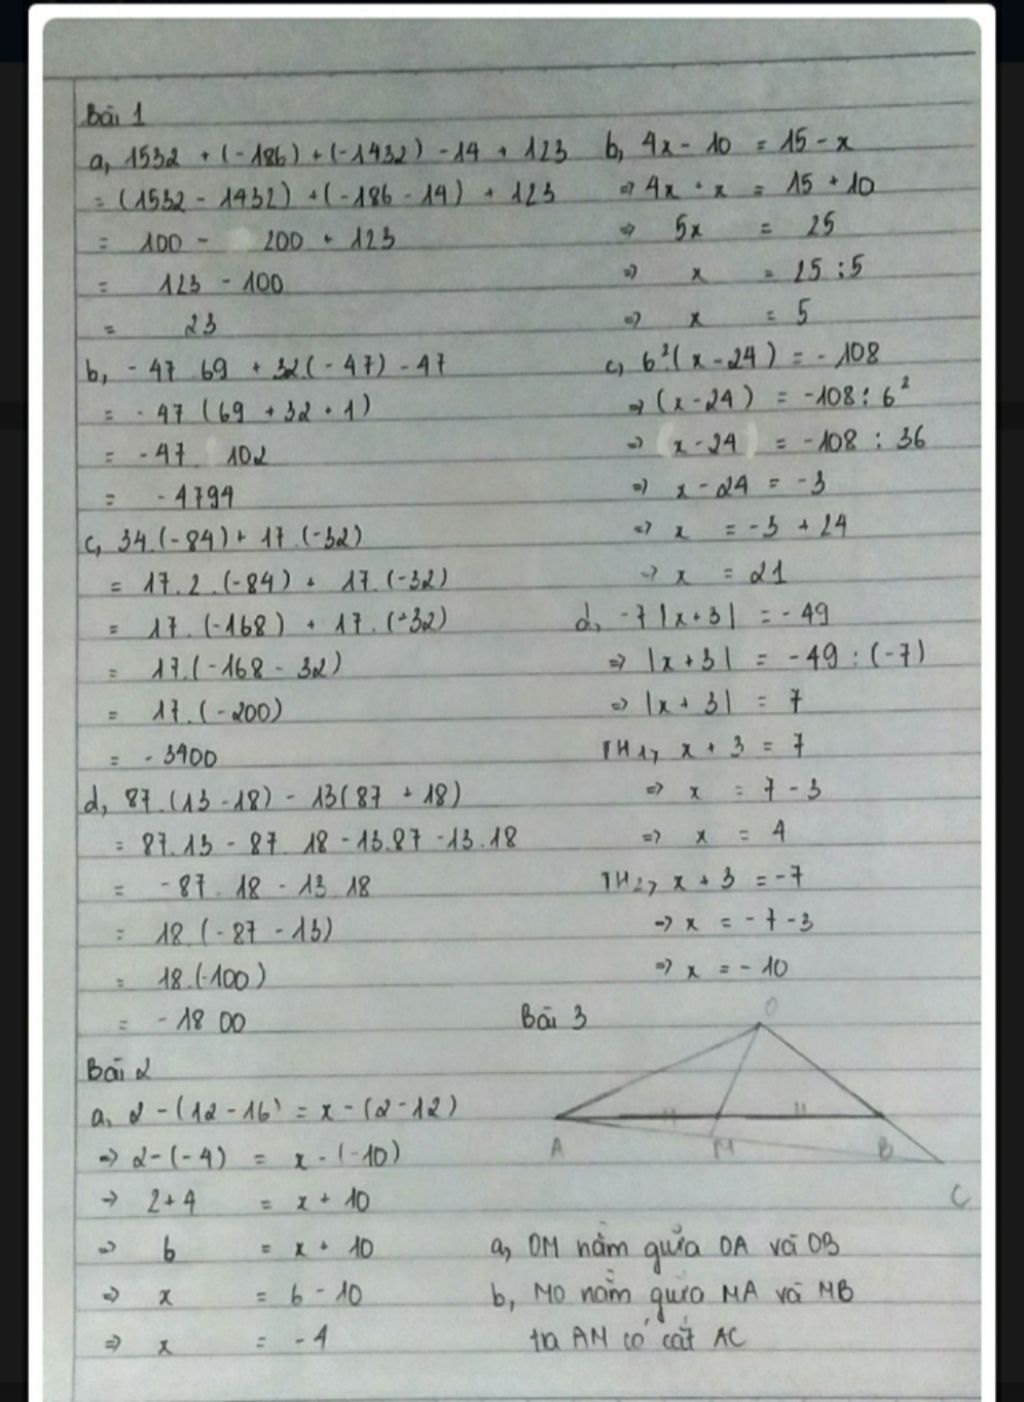 Bài 1
a, 1532 + (-186) + (-1432) - 14 + 123
= (1532 - 1432) + (-186 - 14) + 123
= 100 - 200 + 123
= 123 - 100
= 23
b, - 47 69 + 32(-47) - 47
= - 47 (69 + 32 + 1)
= - 47 102
= - 4794
c, 34.(-84) + 17.(-32)
= 17.2.(-84) + 17.(-32)
= 17.(-168) + 17.(-32)
= 17.(-168 - 32)
= 17.(-200)
= - 3400
d, 87.(13 - 18) - 13(87 + 18)
= 87.13 - 87 18 - 13.87 - 13.18
= - 87. 18 - 13 18
= 18.(-87 - 13)
= 18.(-100)
= - 18 00
Bài 2
a, 2 - (12 - 16) = x - (2 - 12)
=> 2 - (-4) = x - (-10)
=> 2 + 4 = x + 10
=> 6 = x + 10
=> x = 6 - 10
=> x = - 4
b, 4x - 10 = 15 - x
=> 4x + x = 15 + 10
=> 5x = 25
=> x = 25 : 5
=> x = 5
c, 6²(x - 24) = - 108
=> (x - 24) = -108 : 6²
=> (x - 24) = -108 : 36
=> x - 24 = -3
=> x = -3 + 24
=> x = 21
d, -7|x + 3| = - 49
=> |x + 3| = - 49 : (-7)
=> |x + 3| = 7
TH1, x + 3 = 7
=> x = 7 - 3
=> x = 4
TH2, x + 3 = -7
=> x = - 7 - 3
=> x = - 10
Bài 3
O
A M B
C
a, OM nằm giữa OA và OB
b, MO nằm giữa MA và MB
tia AM có cắt AC